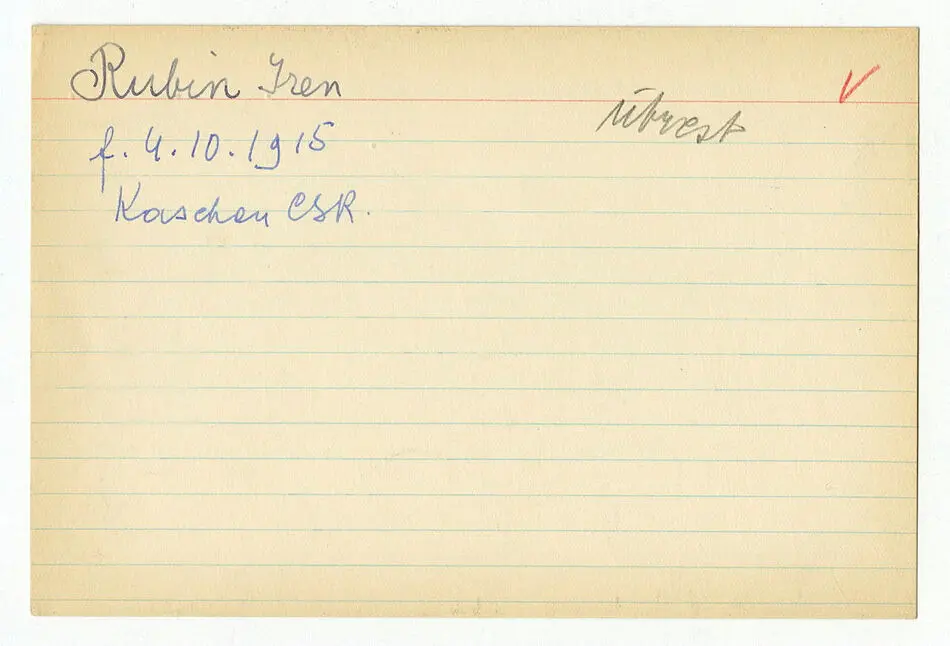 Rubin Iren
utrest
f. 4.10.1915
Kaschau CSR.